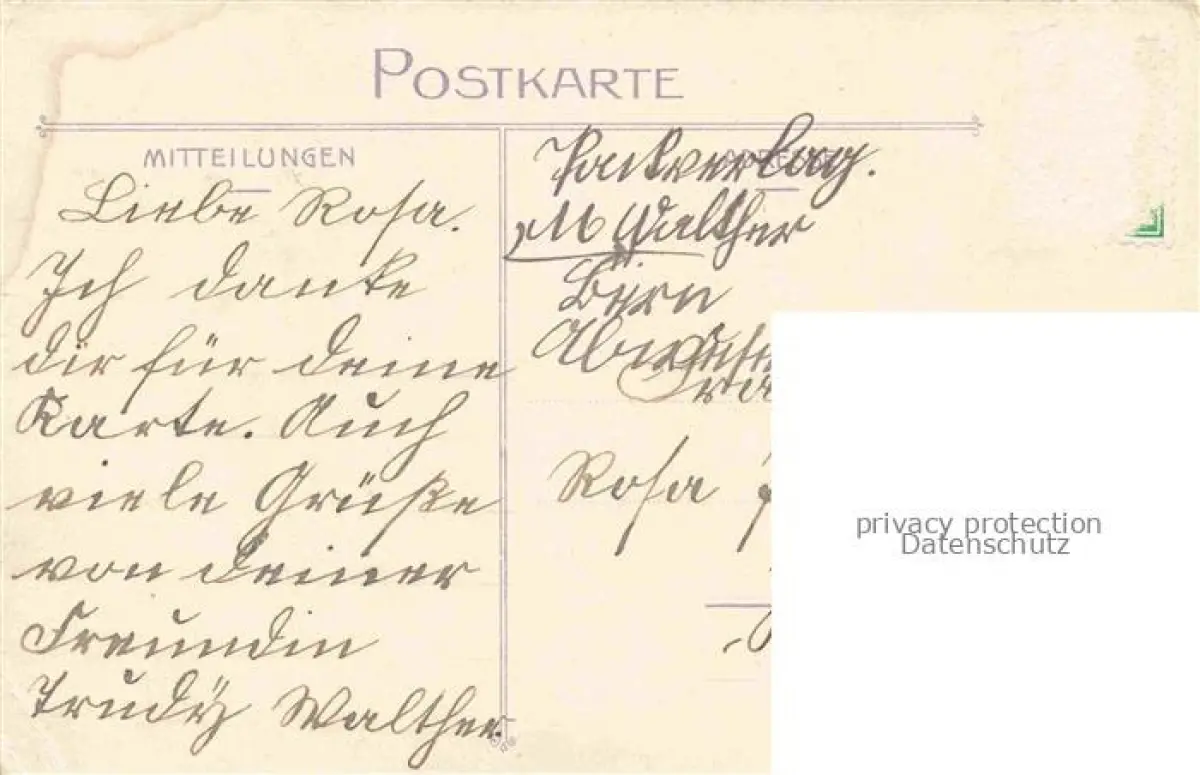 POSTKARTE
MITTEILUNGEN
Liebe Rosa.
Ich danke
dir für deine
Karte. Auch
viele Grüße
von deiner
Freundin
Trudÿ Walther.
M Walther
Bern
Rosa
privacy protection
Datenschutz